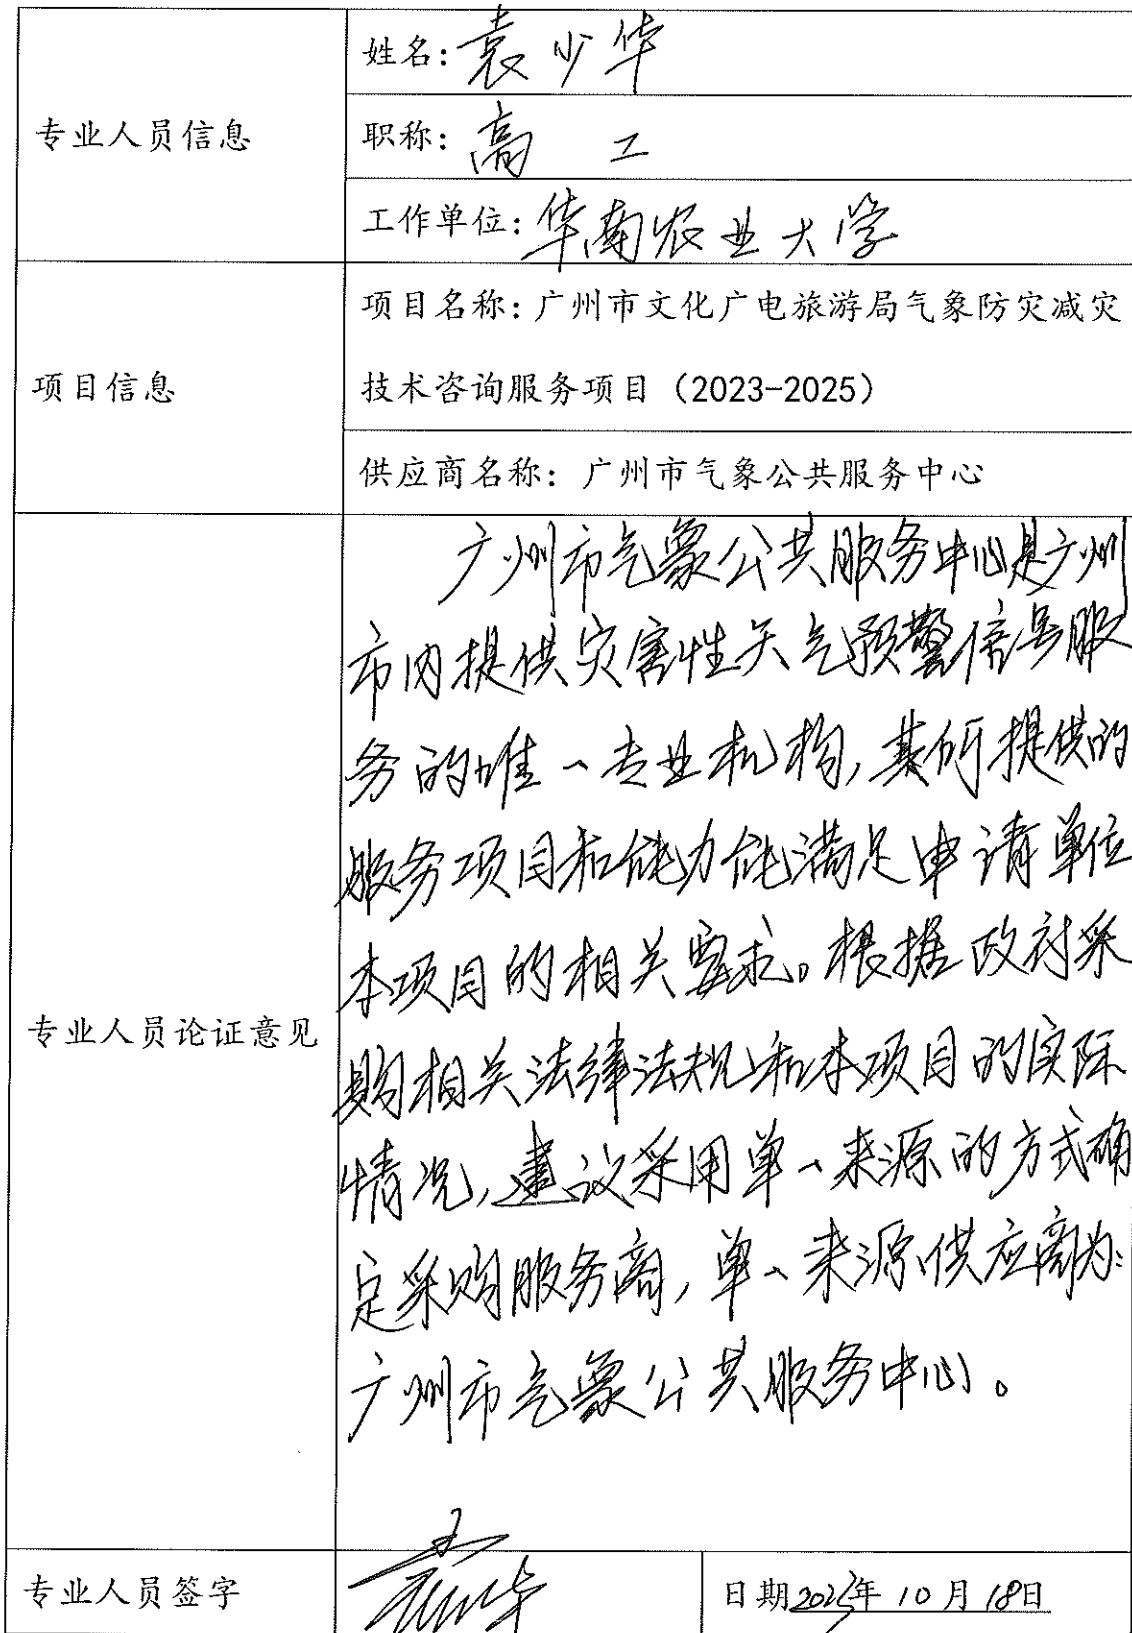 姓名:袁少华
专业人员信息
职称:高工
工作单位:华南农业大学
项目名称:广州市文化广电旅游局气象防灾减灾
项目信息
技术咨询服务项目(2023-2025)
供应商名称:广州市气象公共服务中心
广州市气象公共服务中心是广州
市内提供灾害性天气预警信号服
务的唯一专业机构,其所提供的
服务项目和能力能满足申请单位
本项目的相关要求。根据政府采
专业人员论证意见
购相关法律法规和本项目的实际
情况,建议采用单一来源的方式确
定采购服务商,单一来源供应商为:
广州市气象公共服务中心。
专业人员签字 袁少华 日期 年10月18日